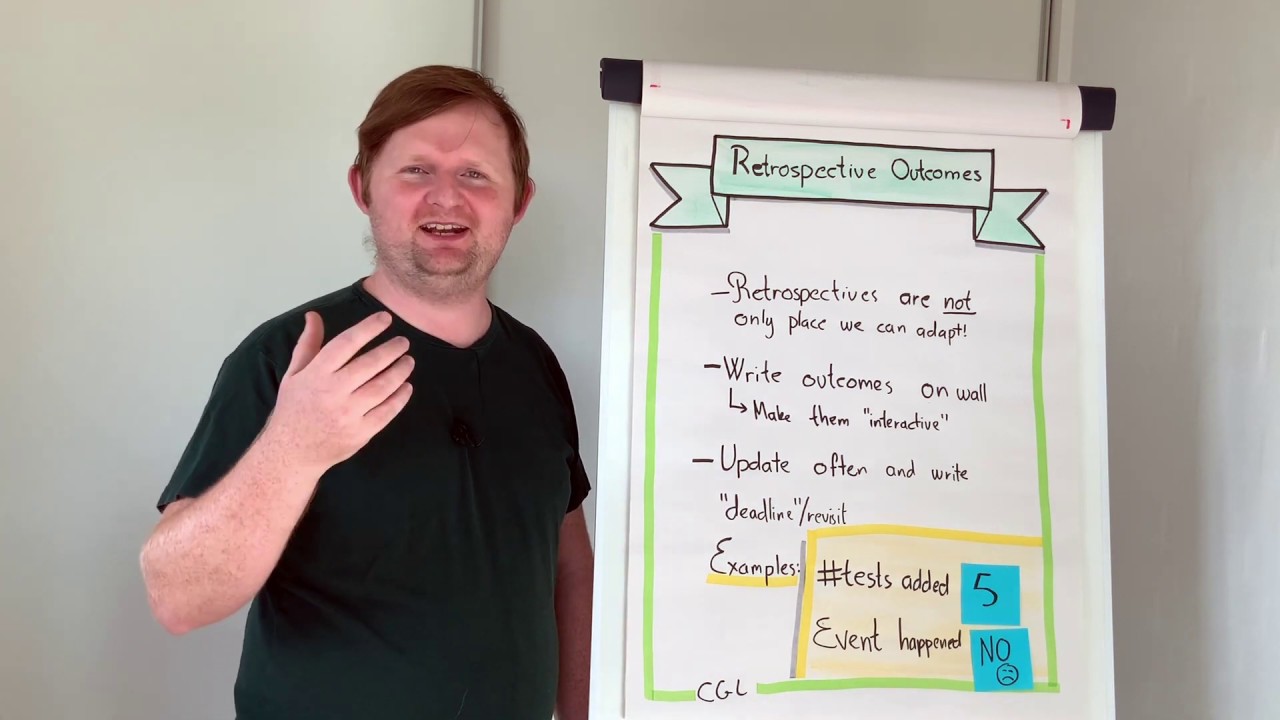 Retrospective Outcomes
- Retrospectives are not
only place we can adapt!
- Write outcomes on wall
↳ Make them "interactive"
- Update often and write
"deadline"/revisit
Examples:
#tests added 5
Event happened NO
CGL